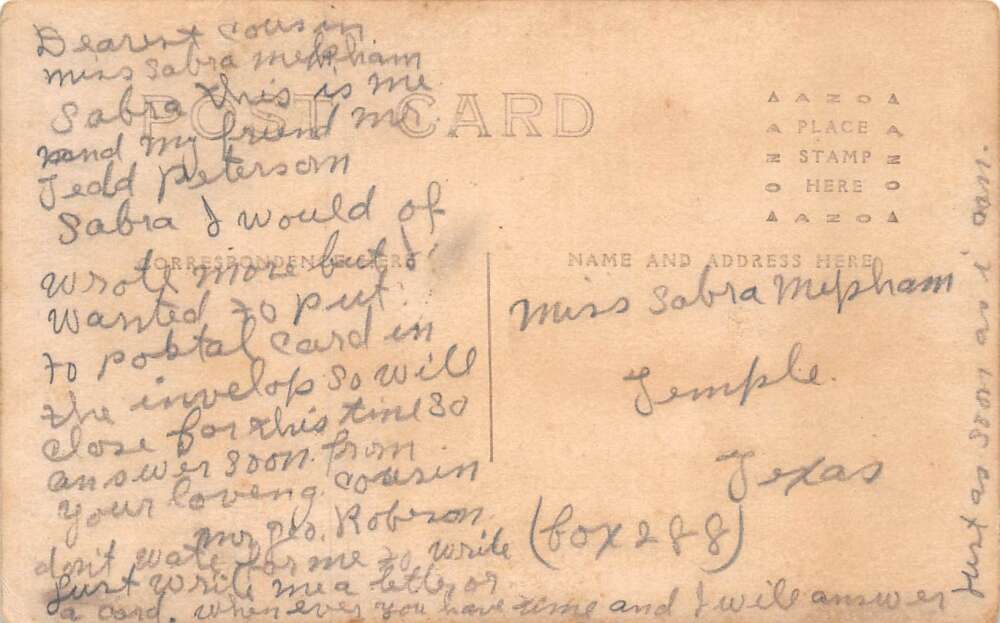 POST CARD
CORRESPONDENCE HERE
NAME AND ADDRESS HERE
AZOA
PLACE
STAMP
HERE
AZOA
Dearest cousin
miss Sabra mepham
Sabra this is me
and my friend mr.
Jedd peterson
Sabra I would of
wrote more but I
wanted to put
to postal card in
the invelop so will
close for this time so
answer soon. from
your loveng cousin
mr. geo. Roberson.
don't wate for me to write
Just write me a letter or
a card. when ever you have time and I will answer
Just as soon as i can.
Miss Sabra Mepham
Temple.
Texas
(box 288)